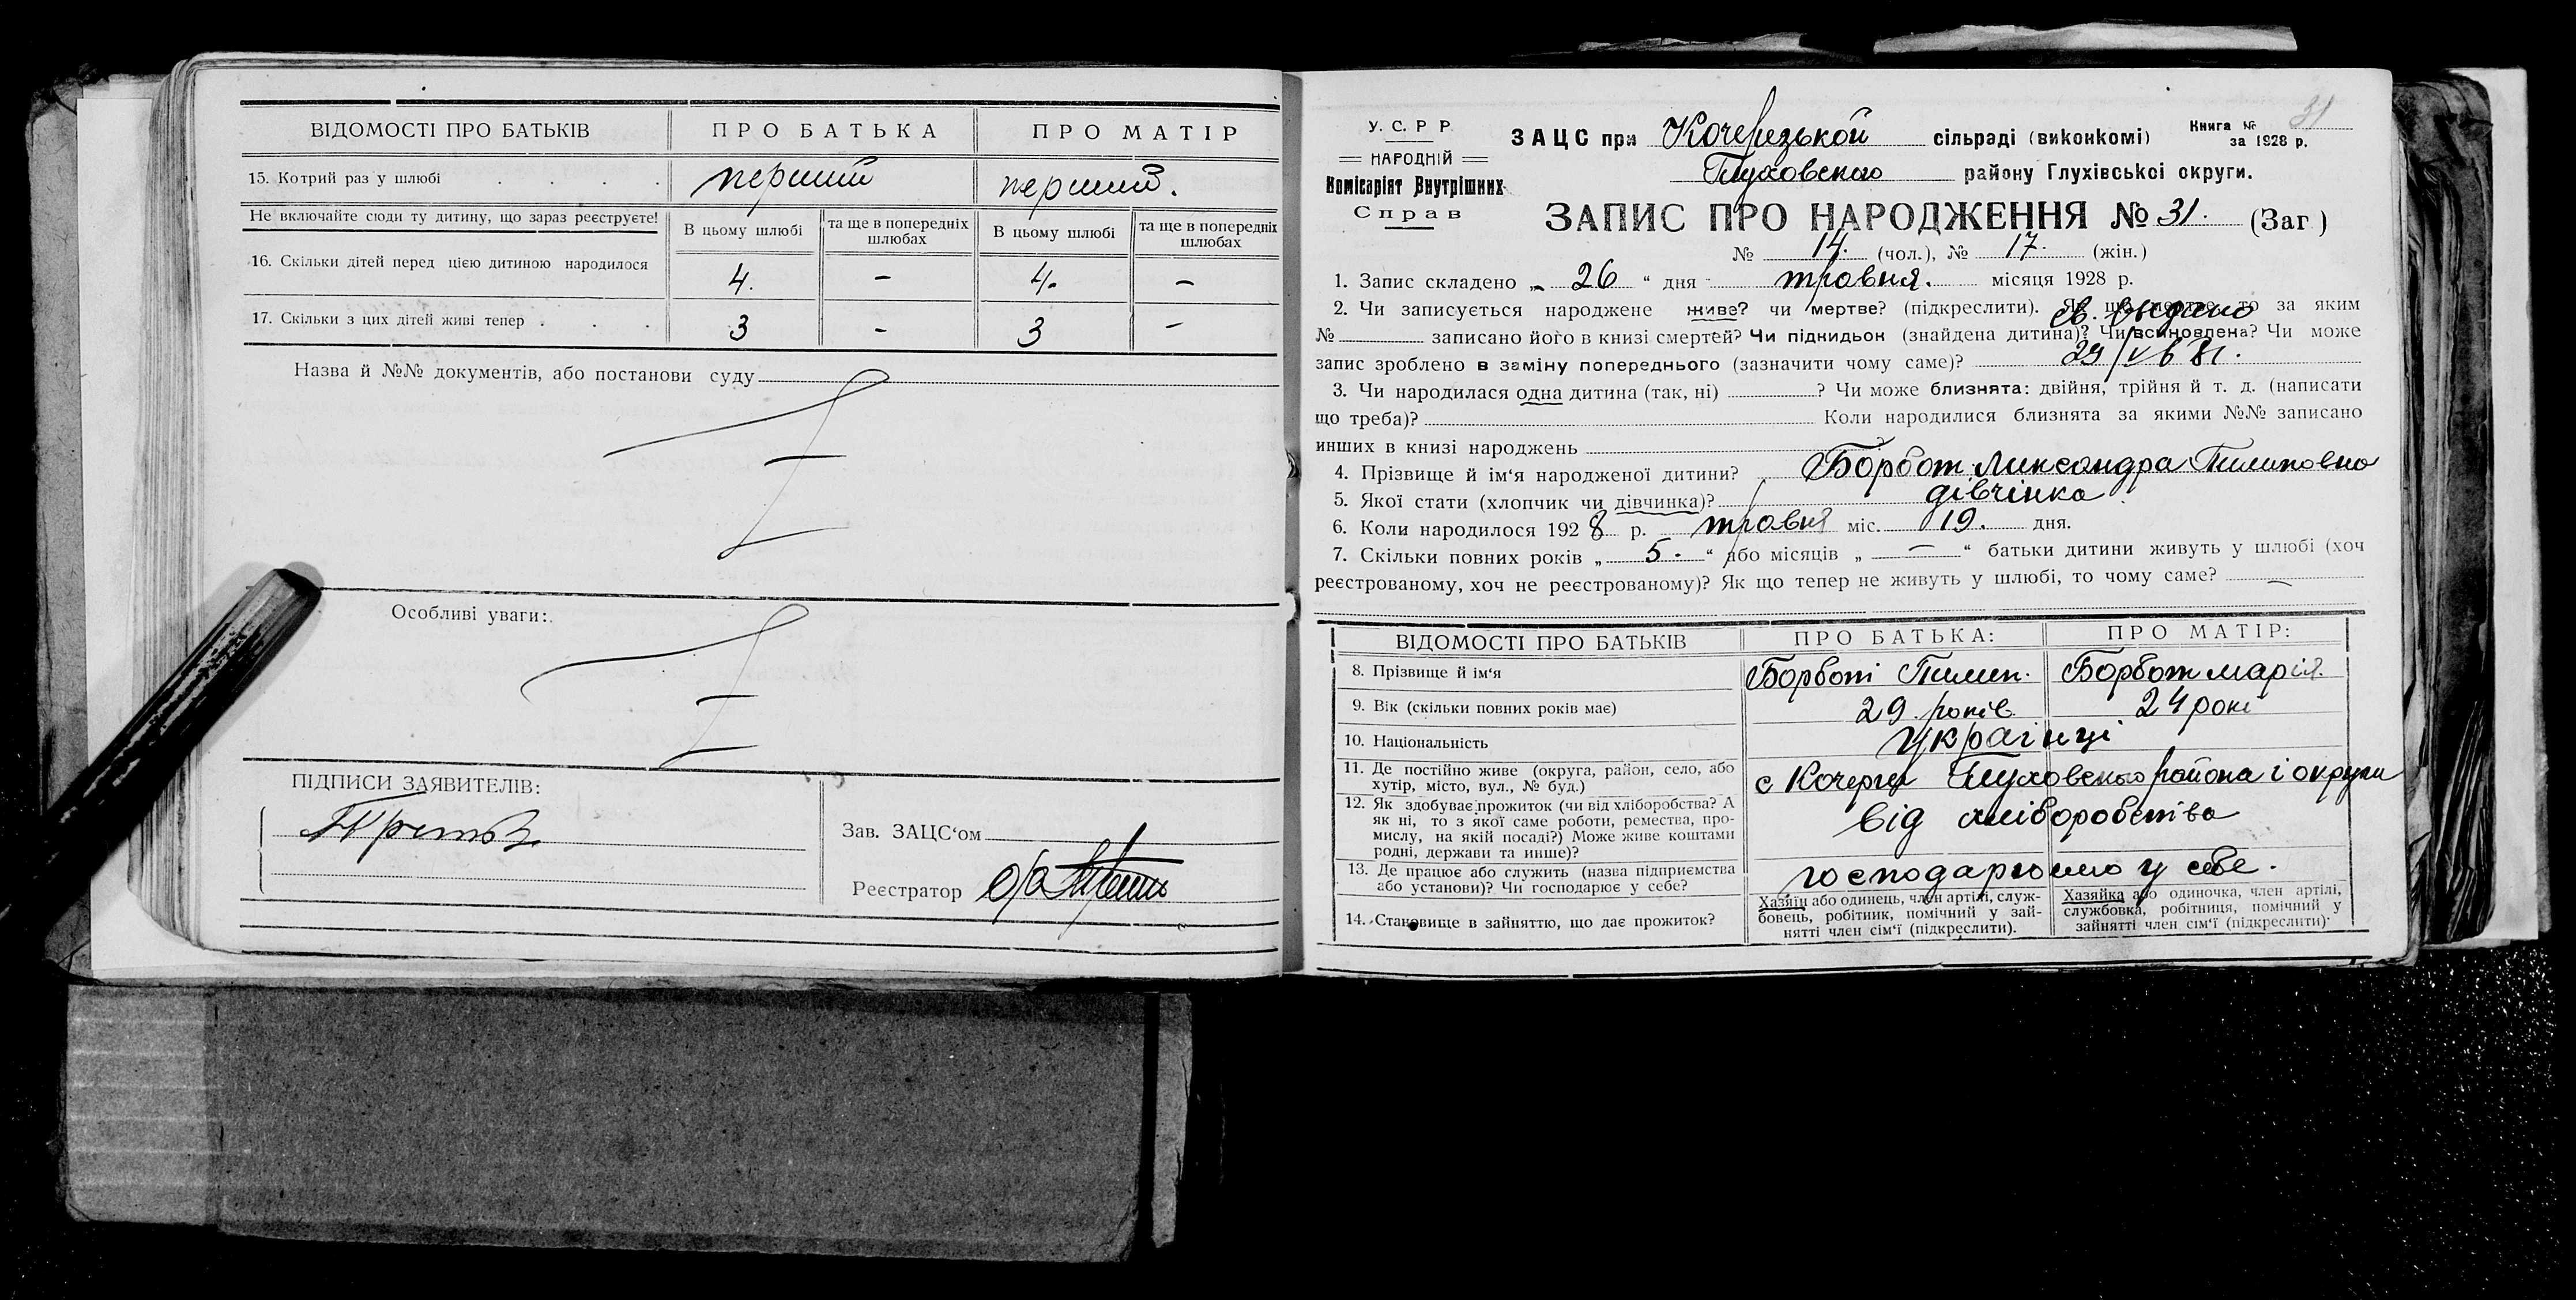 ВІДОМОСТІ ПРО БАТЬКІВ ПРО БАТЬКА ПРО МАТІР
15. Котрий раз у шлюбі . . . . перший перший.
Не включайте сюди ту дитину, що зараз реєструєте!
В цьому шлюбі та ще в попередніх шлюбах В цьому шлюбі та ще в попередніх шлюбах
16. Скільки дітей перед цією дитиною народилося 4. – 4. –
17. Скільки з цих дітей живі тепер . . . 3 – 3 –
Назва й №№ документів, або постанови суду
Особливі уваги:
ПІДПИСИ ЗАЯВИТЕЛІВ:
Зав. ЗАЦС'ом
Реєстратор
31
У. С. Р Р.
НАРОДНІЙ
Комісаріят Внутрішних
Справ
ЗАЦС при Кочерізькой сільраді (виконкомі)
Книга № за 1928 р.
Глуховского району Глухівської округи.
ЗАПИС ПРО НАРОДЖЕННЯ № 31. (Заг)
№ 14. (чол.), № 17. (жін.)
1. Запис складено „ 26 “ дня травня. місяця 1928 р.
2. Чи записується народжене живе? чи мертве? (підкреслити). Як що мертве то за яким
св. выдано
№ записано його в книзі смертей? Чи підкидьок (знайдена дитина)? Чи всиновлена? Чи може
запис зроблено в заміну попереднього (зазначити чому саме)?
3. Чи народилася одна дитина (так, ні) ? Чи може близнята: двійня, трійня й т. д. (написати
що треба)? Коли народилися близнята за якими №№ записано
инших в книзі народжень
4. Прізвище й ім'я народженої дитини? Борбот Ликсандра Пилиповна
5. Якої стати (хлопчик чи дівчинка)? дівчінка
6. Коли народилося 1928 р. травня міс. 19. дня.
7. Скільки повних років „ 5. “ або місяців „ – “ батьки дитини живуть у шлюбі (хоч
реєстрованому, хоч не реєстрованому)? Як що тепер не живуть у шлюбі, то чому саме? –
ВІДОМОСТІ ПРО БАТЬКІВ ПРО БАТЬКА: ПРО МАТІР:
8. Прізвище й ім'я Борбот Пилип. Борбот Марія.
9. Вік (скільки повних років має) 29 років 24 рокі
10. Національність Українці
11. Де постійно живе (округа, район, село, або
хутір, місто, вул., № буд.) с Кочерги Глуховского района і округи
12. Як здобуває прожиток (чи від хліборобства? А
як ні, то з якої саме роботи, ремества, про-
мислу, на якій посаді?) Може живе коштами
родні, держави та инше)? від хліборобства
13. Де працює або служить (назва підприємства
або установи)? Чи господарює у себе? господарюемо у себе.
14. Становище в зайняттю, що дає прожиток?
Хазяін або одинець, член артілі, служ-
бовець, робітник, помічний у зай-
нятті член сім'ї (підкреслити).
Хазяйка або одиночка, член артілі,
службовка, робітниця, помічний у
зайнятті член сім'ї (підкреслити).